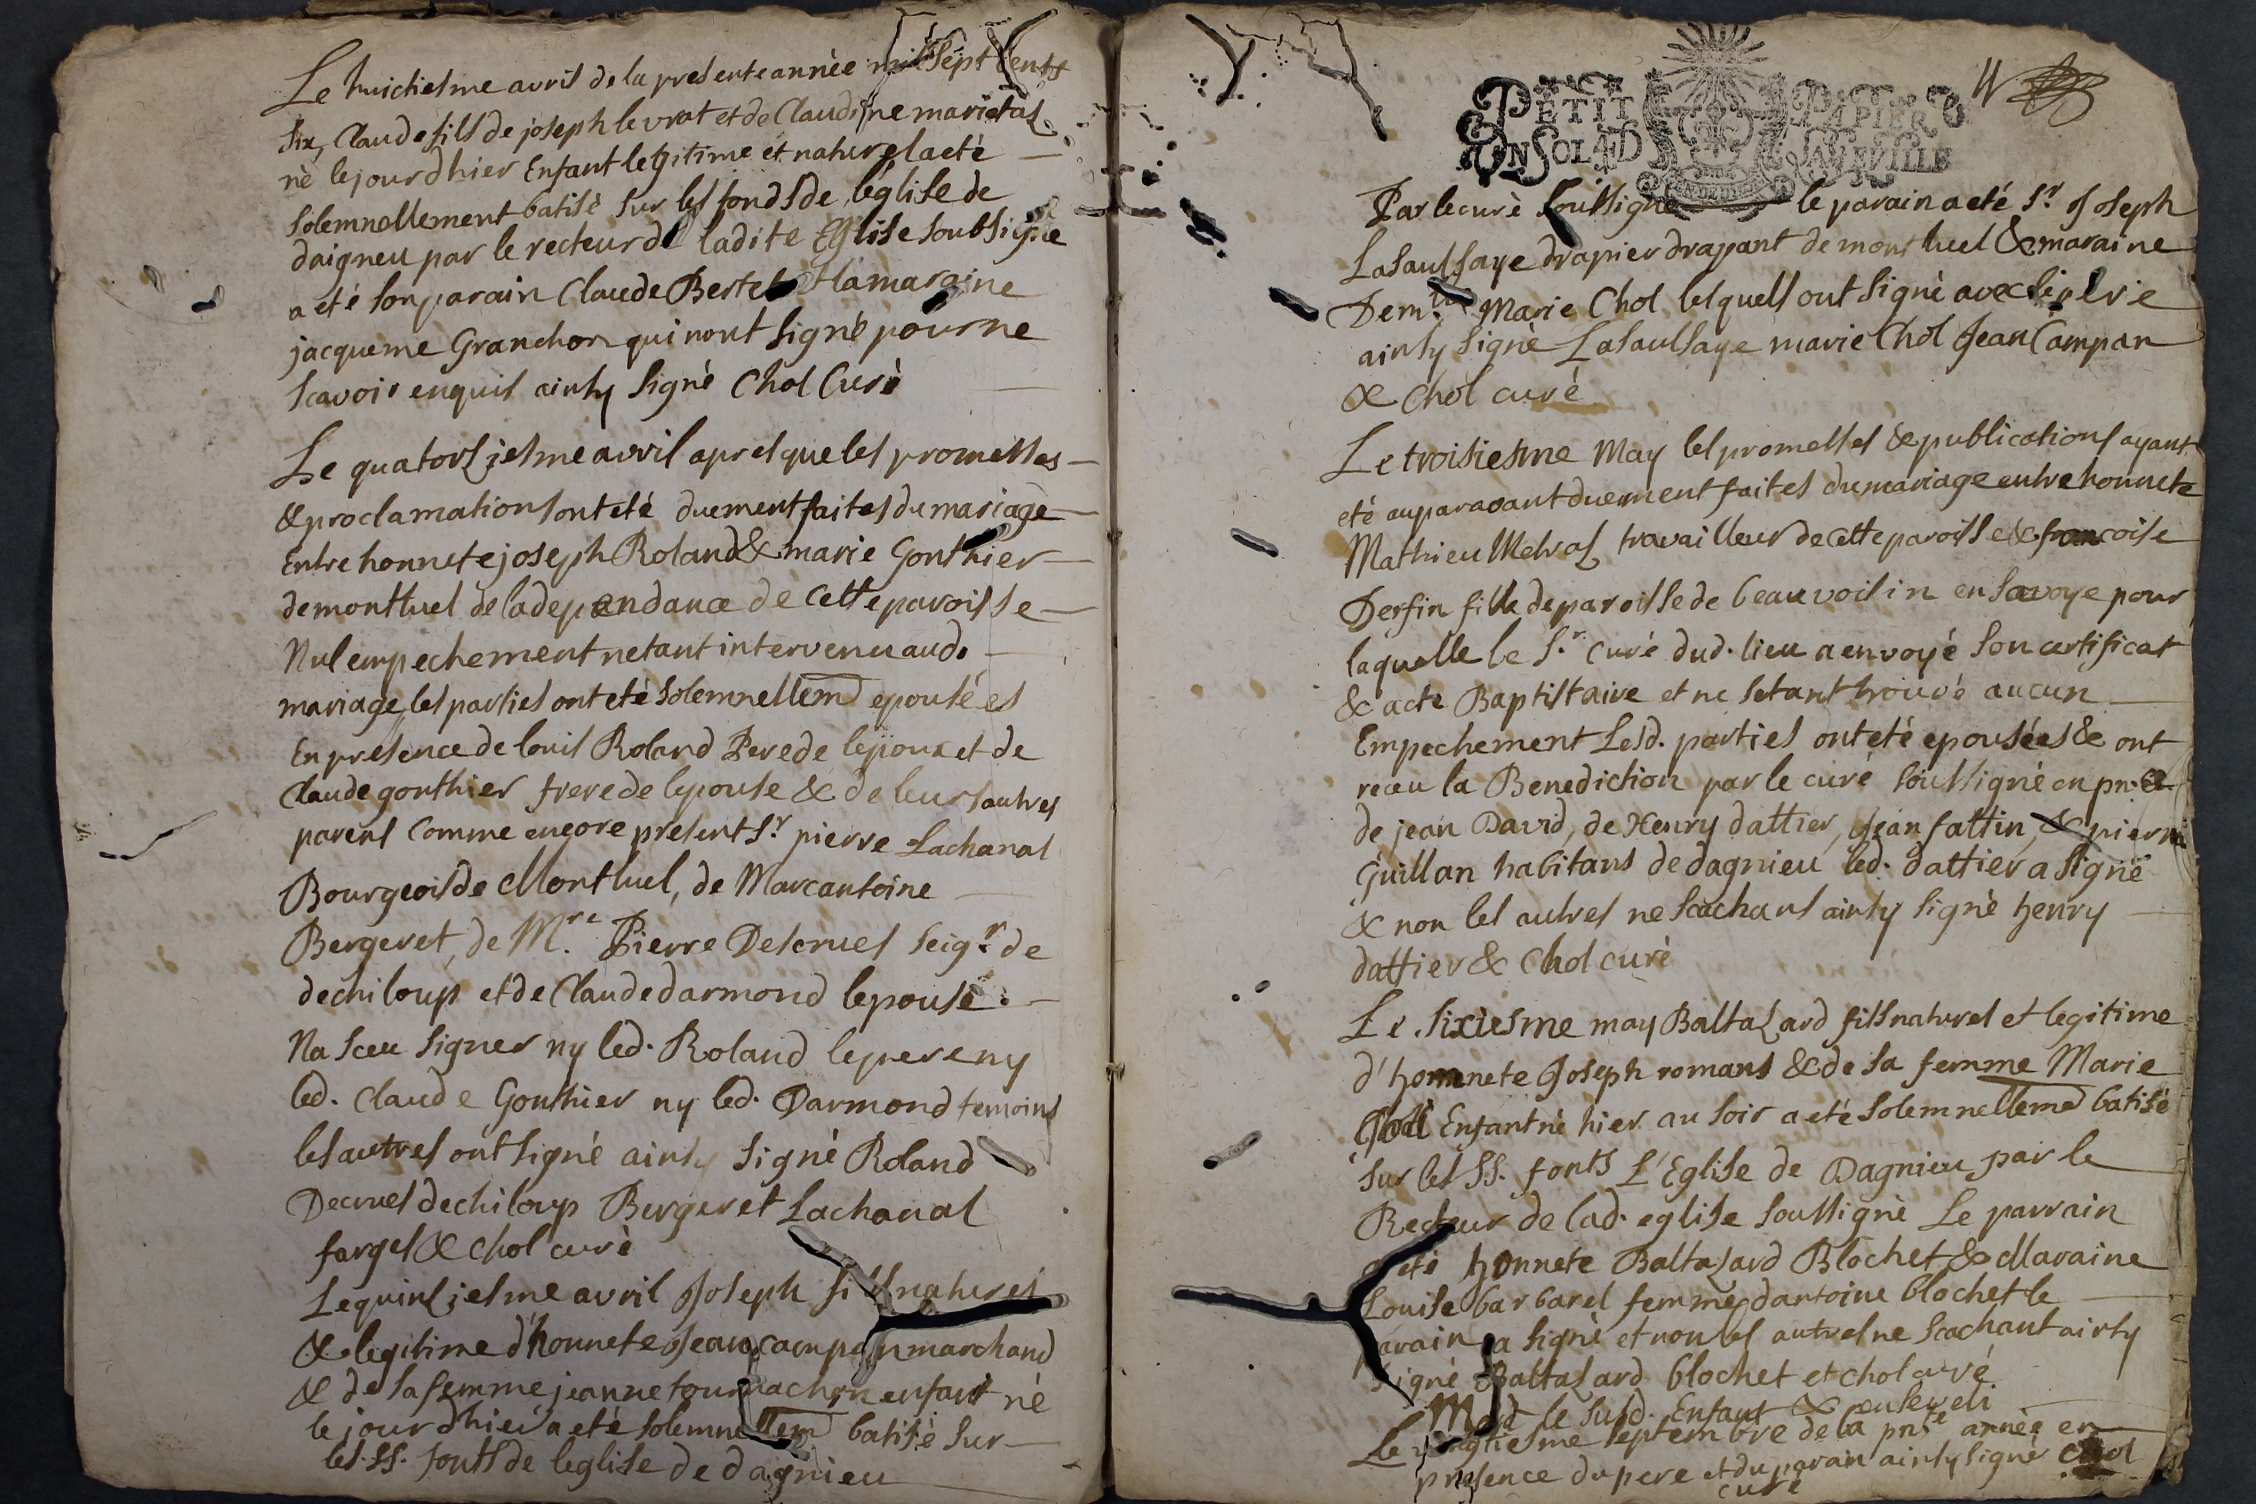 Le huictiesme avril de la presente année mil sept cents
six, Claude fils de joseph levrat et de Claudine marietas
né le jour dhier Enfant legitime et naturel a eté
solemnellement batisé sur les fonds de léglise de
daigneu par le recteur de ladite Eglise soubsigné
a eté son parain Claude Bertet et la maraine
jacqueme Granchon qui nont signé pour ne
scavoir enquis ainsy signé Chol Curé
Le quatorziesme avril apres que les promesses
& proclamations ont eté duement faites du mariage
Entre honnete joseph Roland & marie Gonthier
de montluel de la dependance de cette paroisse
Nul empechement netant intervenu aud.
mariage, les parties ont eté solemnellemt epousées
En presence de louis Roland Pere de lepoux et de
Claude gonthier frere de lepouse & de leurs autres
parens comme encore present Sr pierre Lachanal
Bourgeois de Montluel, de Marcantoine
Bergeret, de Mre Pierre Descruel seigr de
dechiloup et de Claude darmond lepouse.
Na sceu signer ny led. Roland le pere ny
led. Claude Gonthier ny led. Darmond temoins
les autres ont signé ainsy signé Roland
Decruel dechiloup Bergeret Lachanal
farges & Chol curé
Le quinziesme avril Joseph fils naturel
& legitime d'honnete Jean campan marchand
& de sa femme jeanne tournachon enfant né
le jour dhier a eté solemnellemt batisé sur
les SS. fonts de leglise de dagnieu
PETIT PAPIER
UN SOL 4 D LA FEUILLE
Par le curé soussigné le parain a eté Sr Joseph
Lasaulsaye drapier drapant de montluel & maraine
Demlle Marie Chol lesquels ont signé avec le pere
ainsy signé Lasaulsaye marie Chol Jean Campan
& Chol curé
Le troisiesme May les promesses & publications ayant
eté auparavant duement faites du mariage entre honnete
Mathieu Melras travailleur de cette paroisse & francoise
Derfin fille de paroisse de beauvoisin en Savoye pour
laquelle le Sr Curé dud. lieu a envoyé son certificat
& acte Baptistaire et ne setant trouvé aucun
Empechement Lesd. parties ont eté epousées & ont
receu la Benediction par le curé soussigné en pnce
de jean David, de Henry dattier, Jean fattin, & pierre
Guillan habitans de dagnieu led. dattier a signé
& non les autres ne scachans ainsy signé henry
dattier & Chol curé
Le sixiesme may Baltazard fils naturel et legitime
d'honnete Joseph romans & de sa femme Marie
Chol Enfant né hier au soir a eté solemnellemt batisé
sur les SS. fonts L'Eglise de Dagnieu par le
Recteur de lad. eglise soussigné Le parrain
a eté honnete Baltazard Blochet & Maraine
Louise barbarel femme dantoine blochet le
parain a signé et non les autres ne scachant ainsy
signé Baltazard blochet et chol curé
Mort le susd. Enfant & enseveli
Le vingtiesme septembre de la pnte année en
presence du pere et du parain ainsy signé Chol
curé